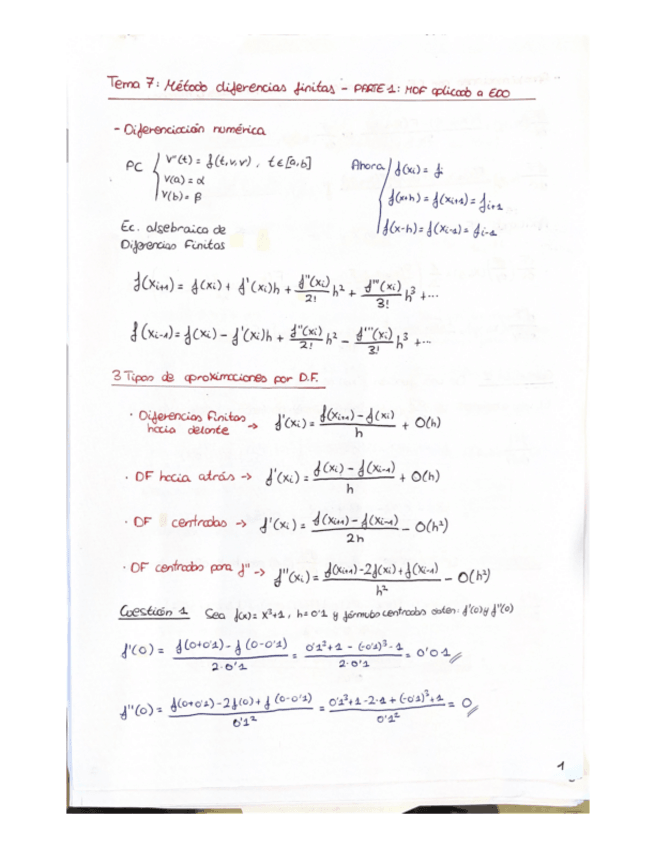 Tema 7: Método diferencias finitas - PARTE 1: MDF aplicado a EDO
- Diferenciación numérica
PC { v''(t) = f(t,v,v'), t ∈ [a,b]
v(a) = α
v(b) = β
Ahora { f(xi) = fi
f(x+h) = f(xi+1) = fi+1
f(x-h) = f(xi-1) = fi-1
Ec. algebraica de
Diferencias Finitas
f(xi+1) = f(xi) + f'(xi)h + f''(xi)/2! h² + f'''(xi)/3! h³ + ...
f(xi-1) = f(xi) - f'(xi)h + f''(xi)/2! h² - f'''(xi)/3! h³ + ...
3 Tipos de aproximaciones por D.F.
· Diferencias finitas hacia delante → f'(xi) = (f(xi+1) - f(xi))/h + O(h)
· DF hacia atrás → f'(xi) = (f(xi) - f(xi-1))/h + O(h)
· DF centradas → f'(xi) = (f(xi+1) - f(xi-1))/2h - O(h²)
· DF centradas para f'' → f''(xi) = (f(xi+1) - 2f(xi) + f(xi-1))/h² - O(h²)
Cuestión 1 Sea f(x) = x³+1, h=0'1 y fórmulas centradas obten. f'(0) y f''(0)
f'(0) = (f(0+0'1) - f(0-0'1))/(2·0'1) = (0'1³+1 - (-0'1)³ - 1)/(2·0'1) = 0'01
f''(0) = (f(0+0'1) - 2f(0) + f(0-0'1))/0'1² = (0'1³+1-2·1+(-0'1)³+1)/0'1² = 0
1